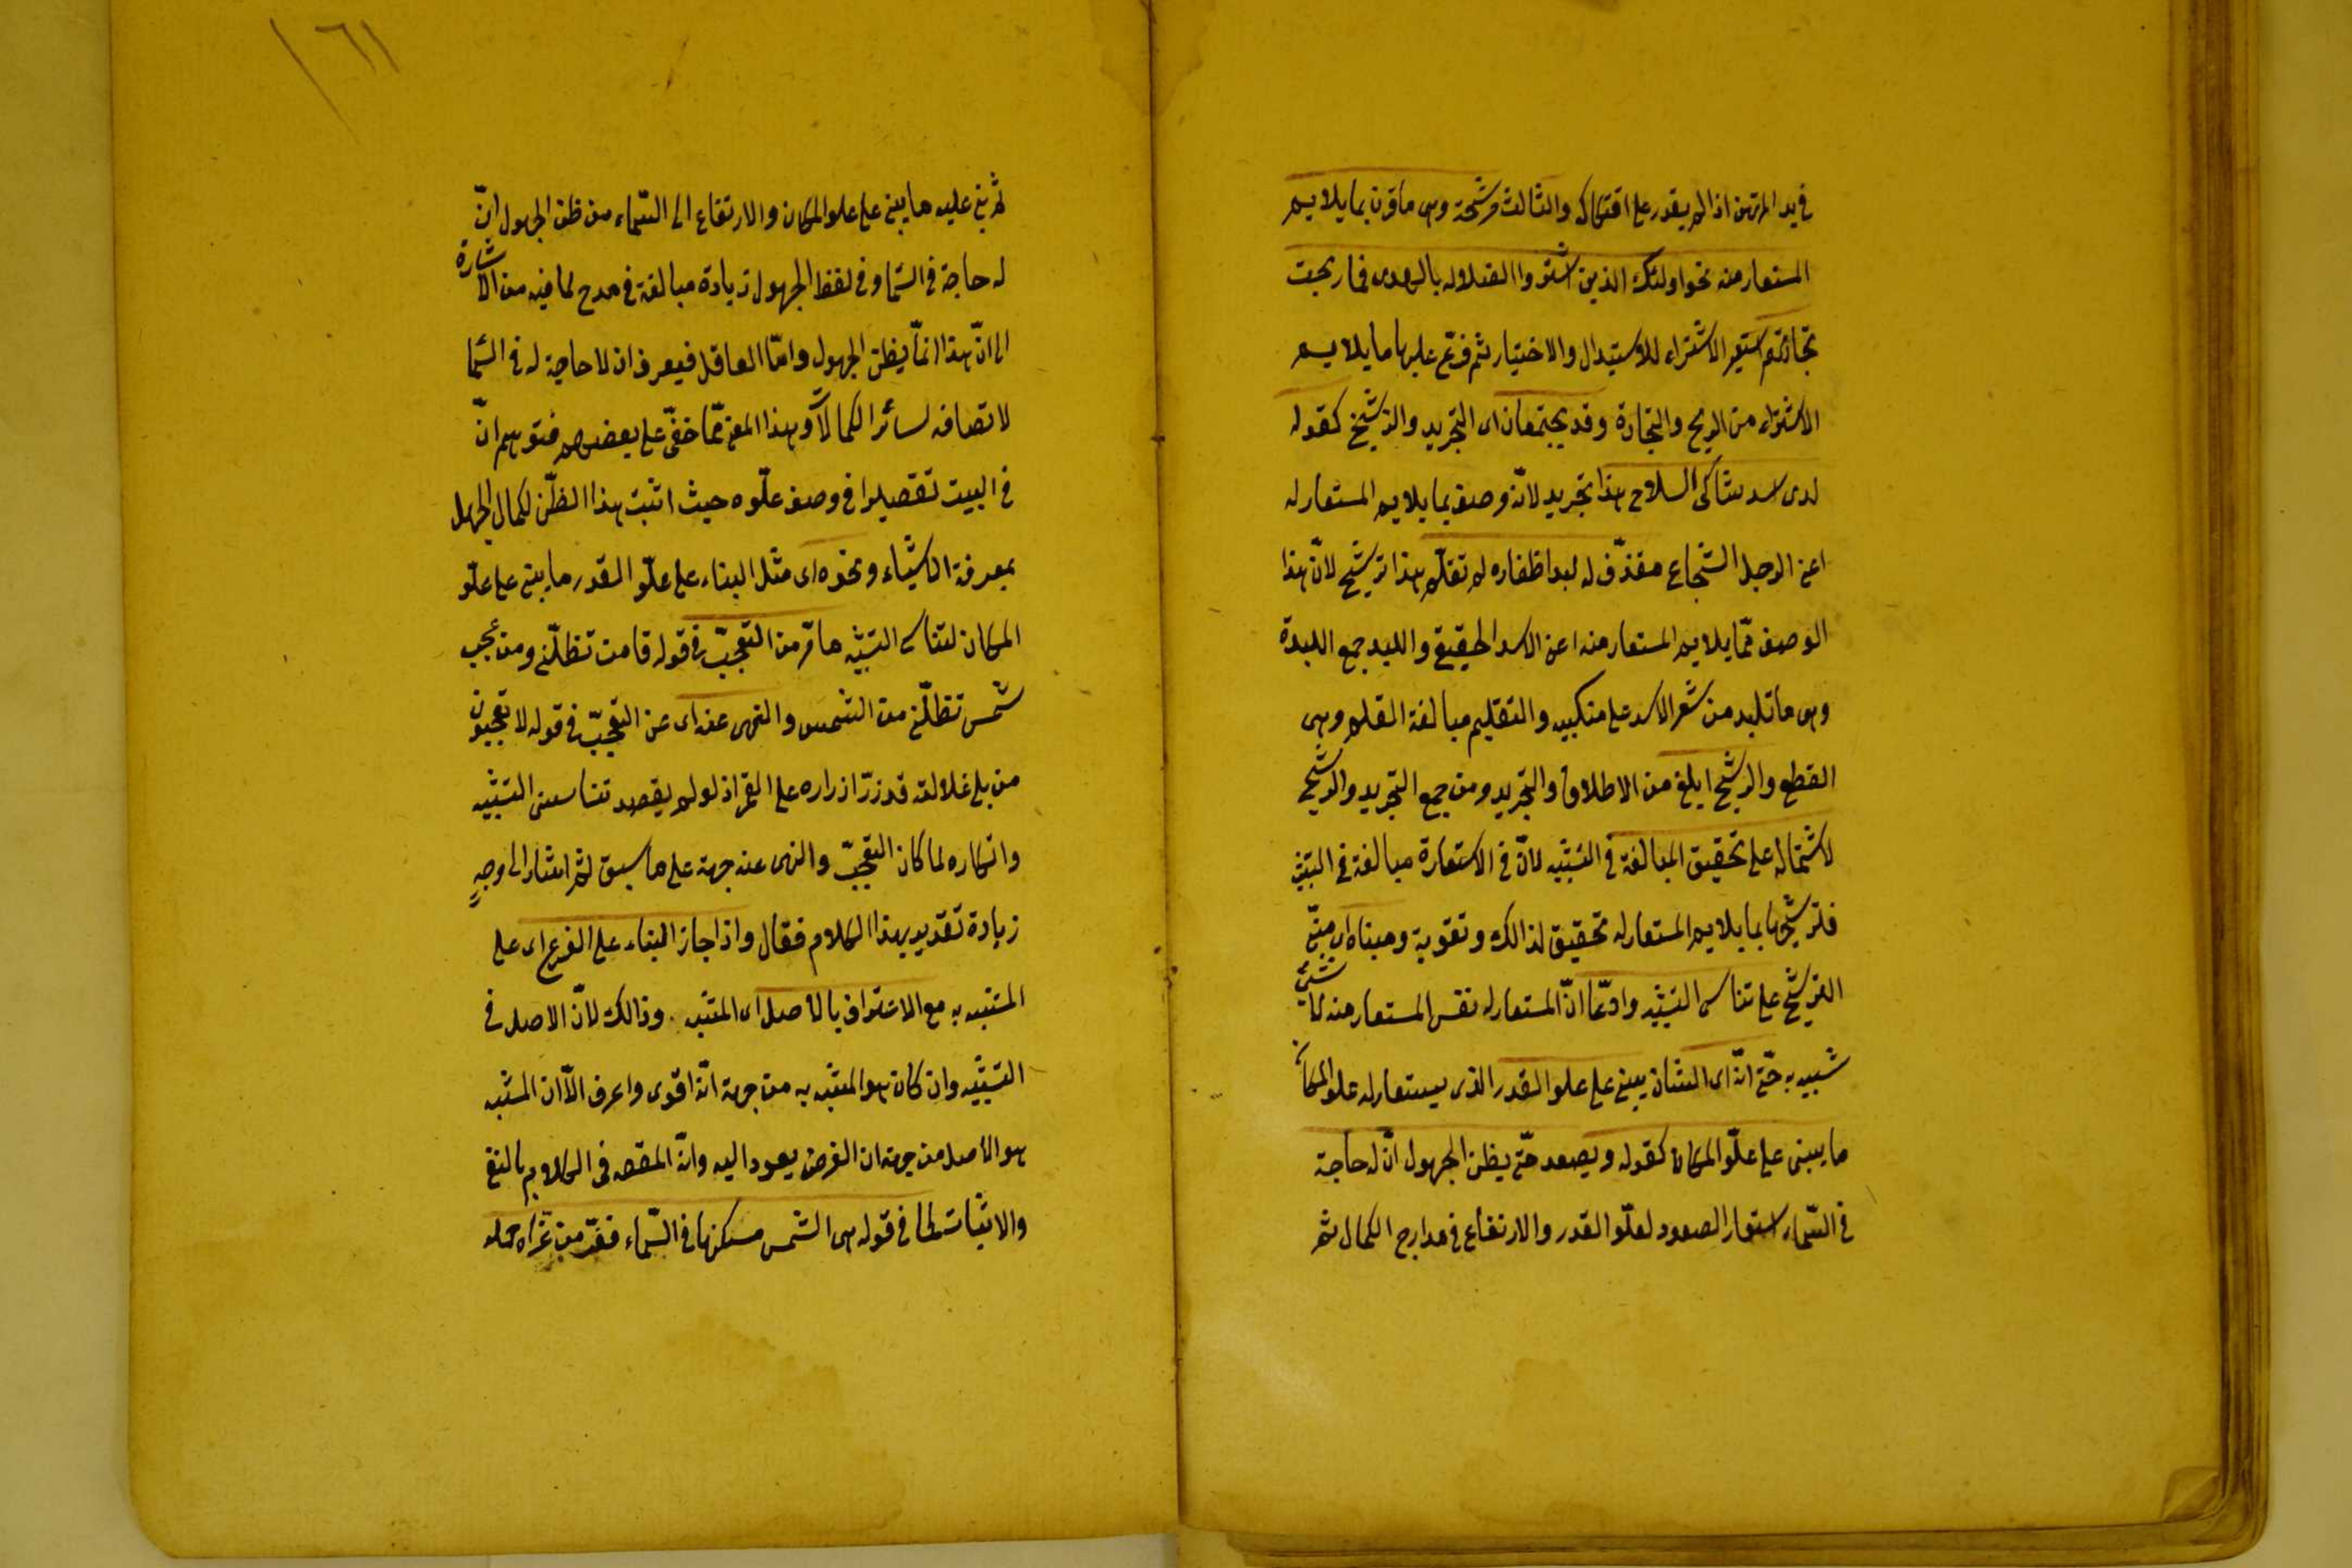 في يد المرتهن اذا لم يقدر على افتكاكه والثالث مرشحة وهى ما قرن بما يلايم
المستعار منه نحو اولئك الذين اشتروا الضلالة بالهدى فما ربحت
تجارتهم استعير الاشتراء للاستبدال والاختيار ثم فرّع عليها ما يلايم
الاشتراء من الربح والتجارة وقد يجتمعان اى التجريد والترشيح كقوله
لدى اسد شاكى السلاح هذا تجريد لانّه وصف بما يلايم المستعار له
اعنى الرجل الشجاع مقذّف له لبد اظفاره لم تقلّم هذا ترشيح لانّ هذا
الوصف ممّا يلايم المستعار منه اعنى الاسد الحقيقى واللبد جمع اللبدة
وهى ما تلبد من شعر الاسد على منكبيه والتقليم مبالغة القلم وهى
القطع والترشيح ابلغ من الاطلاق والتجريد ومن جمع التجريد والترشيح
لاشتماله على تحقيق المبالغة فى التشبيه لانّ فى الاستعارة مبالغة فى التشبيه
فلترشيحها بما يلايم المستعار له تحقيق لذالك وتقوية ومبناه اى مبنى
الترشيح على تناسى التشبيه وادّعا انّ المستعار له نفس المستعار منه لا شئ
شبيه به حتّى انّه اى الشان يبنى على علو القدر الذى يستعار له علو المكان
ما يبنى على علّو المكان كقوله ويصعد حتّى يظن الجهول انّ له حاجة
فى السّماء استعار الصعود لعلّو القدر والارتفاع فى مدارج الكمال ثم
١٦١
ثم بنى عليه ما يبنى على علو المكان والارتقاع الى السّماء من ظن الجهول انّ
له حاجة فى السّما وفى لفظ الجهول زيادة مبالغة فى مدح لما فيه من الاشارة
الى انّ هذا انّما يظن الجهول وامّا العاقل فيعرف ان لا حاجة له فى السّما
لاتصافه لسائر الكمالات وهذا المعنى ممّا خفّى على بعضهم فتوهم انّ
فى البيت تقصيلا فى وصف علّوه حيث اثبت هذا الظّن لكمال الجهل
بمعرفة الاشياء ونحوه اى مثل البناء على علّو القدر ما يبنى على علّو
المكان لتناسى التشبيه ما مرّ من التعجبّ فى قوله قامت تظلّلنى ومن عجب
شمس تظلّلنى من الشمس والنهى عنه اى عن التعجبّ فى قوله لا تعجبون
من بلى غلالته قد زرّ ازراره على القمر اذ لو لم يقصد تناسى التشبيه
وانكاره لما كان التعجبّ والنهى عنه جهة على ما سبق ثم اشار الى وجه
زيادة تقدير بهذا الكلام فقال واذا جاز البناء على الفرع اى على
المشبه به مع الاعتراف بالاصل اى المشبه. وذالك لانّ الاصل فى
التشبيه وان كان هو المشبه به من جهة انّه اقوى واعرف الّا ان المشبه
هو الاصل من جهة ان الغرض يعود اليه وانّه المقصد فى الكلام بالنفى
والاثبات كما فى قوله هى الشمس مسكنها فى السّماء فعّز من عزاه حمله